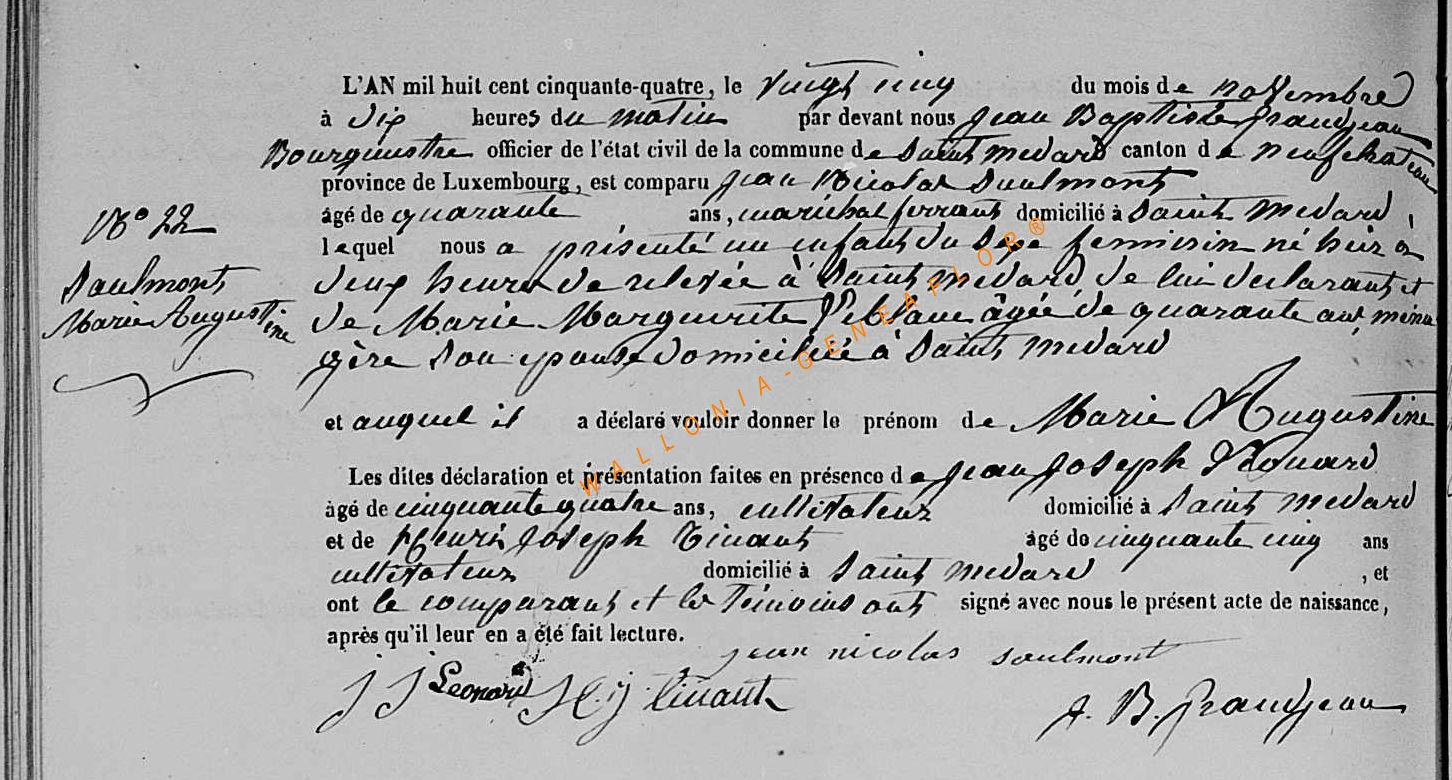 L'AN mil huit cent cinquante-quatre, le vingt cinq du mois de novembre
à dix heures du matin par devant nous Jean Baptiste Grandjean
Bourgmestre officier de l'état civil de la commune de Saint medard canton de neufchateau
province de Luxembourg, est comparu Jean Nicolas Saulmont
âgé de quarante ans, maréchal ferrant domicilié à Saint Medard,
lequel nous a présenté un enfant du sexe feminin né hier à
deux heures de relevée à Saint medard, de lui declarant et
de Marie Marguerite âgée de quarante ans, ména
gère son epouse domiciliée à Saint medard
N° 22
Saulmont
Marie Augustine
et auquel il a déclaré vouloir donner le prénom de Marie Augustine
Les dites déclaration et présentation faites en présence de Jean Joseph Léonard
âgé de cinquante quatre ans, cultivateur domicilié à Saint medard
et de Henri Joseph Tinant âgé de cinquante cinq ans
cultivateur domicilié à Saint medard, et
ont le comparant et les témoins ont signé avec nous le présent acte de naissance,
après qu'il leur en a été fait lecture.
jean nicolas saulmont
J J Leonard H. J. Tinant
J. B. Grandjean
WALLONIA-GENEAFLOR®